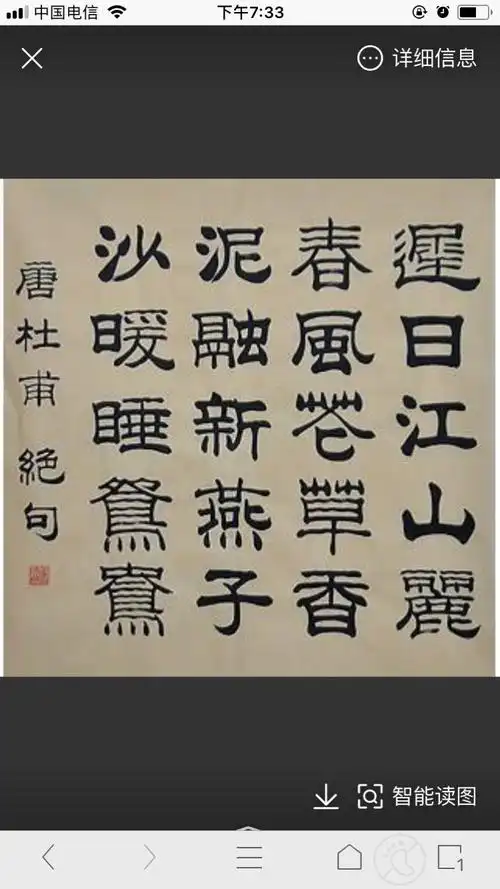 中国电信
下午7:33
详细信息
遲日江山麗
春風花草香
泥融新燕子
沙暖睡鴛鴦
唐杜甫 絕句
智能读图
1